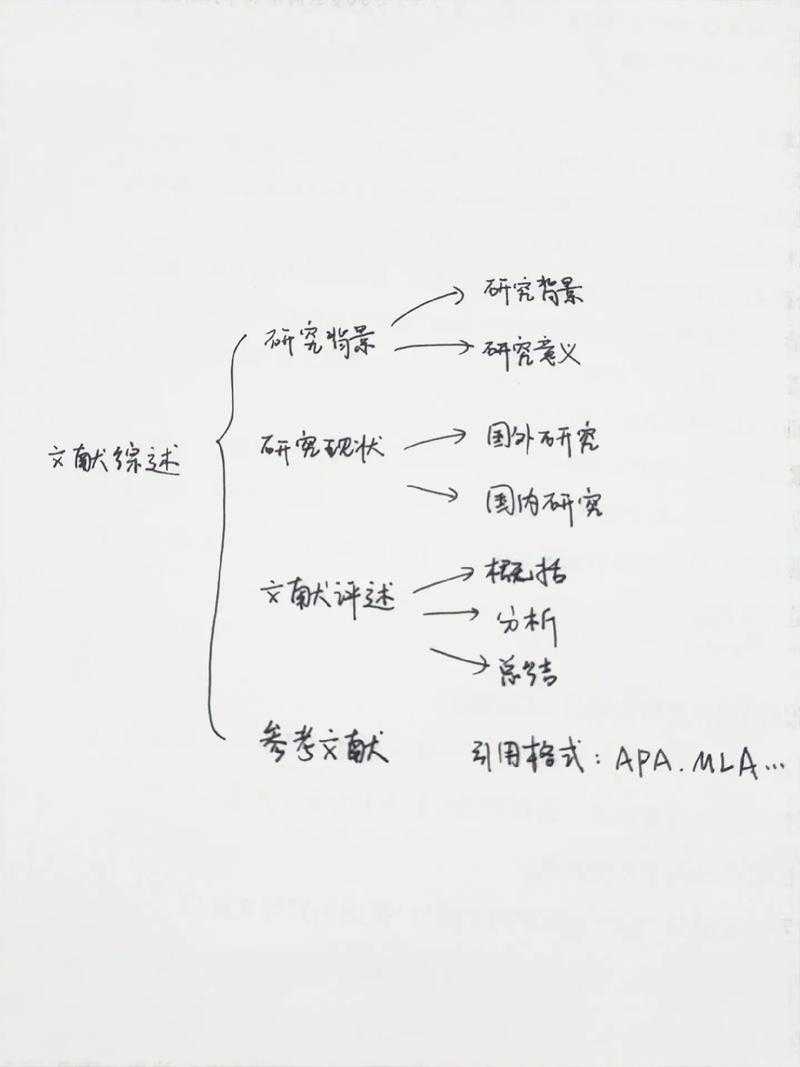 研究背景
研究背景
研究意义
研究现状
国外研究
国内研究
文献综述
文献评述
概括
分析
总结
参考文献 引用格式：APA.MLA…